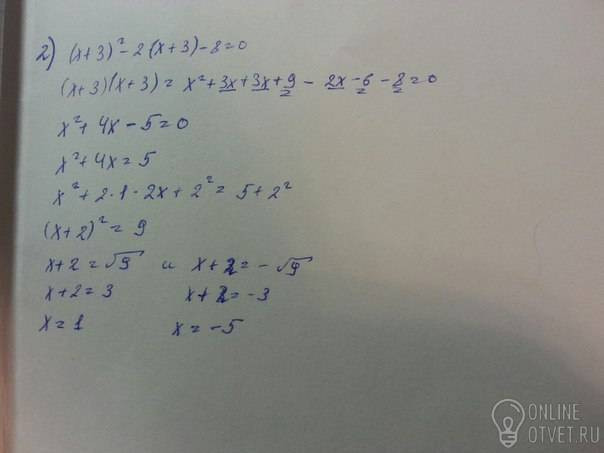 2) (x+3)² - 2(x+3) - 8 = 0
(x+3)(x+3) = x² + 3x + 3x + 9 - 2x - 6 - 8 = 0
x² + 4x - 5 = 0
x² + 4x = 5
x² + 2·1·2x + 2² = 5 + 2²
(x+2)² = 9
x+2 = √9 и x+2 = -√9
x+2 = 3 x+2 = -3
x = 1 x = -5
ONLINE
OTVET.RU